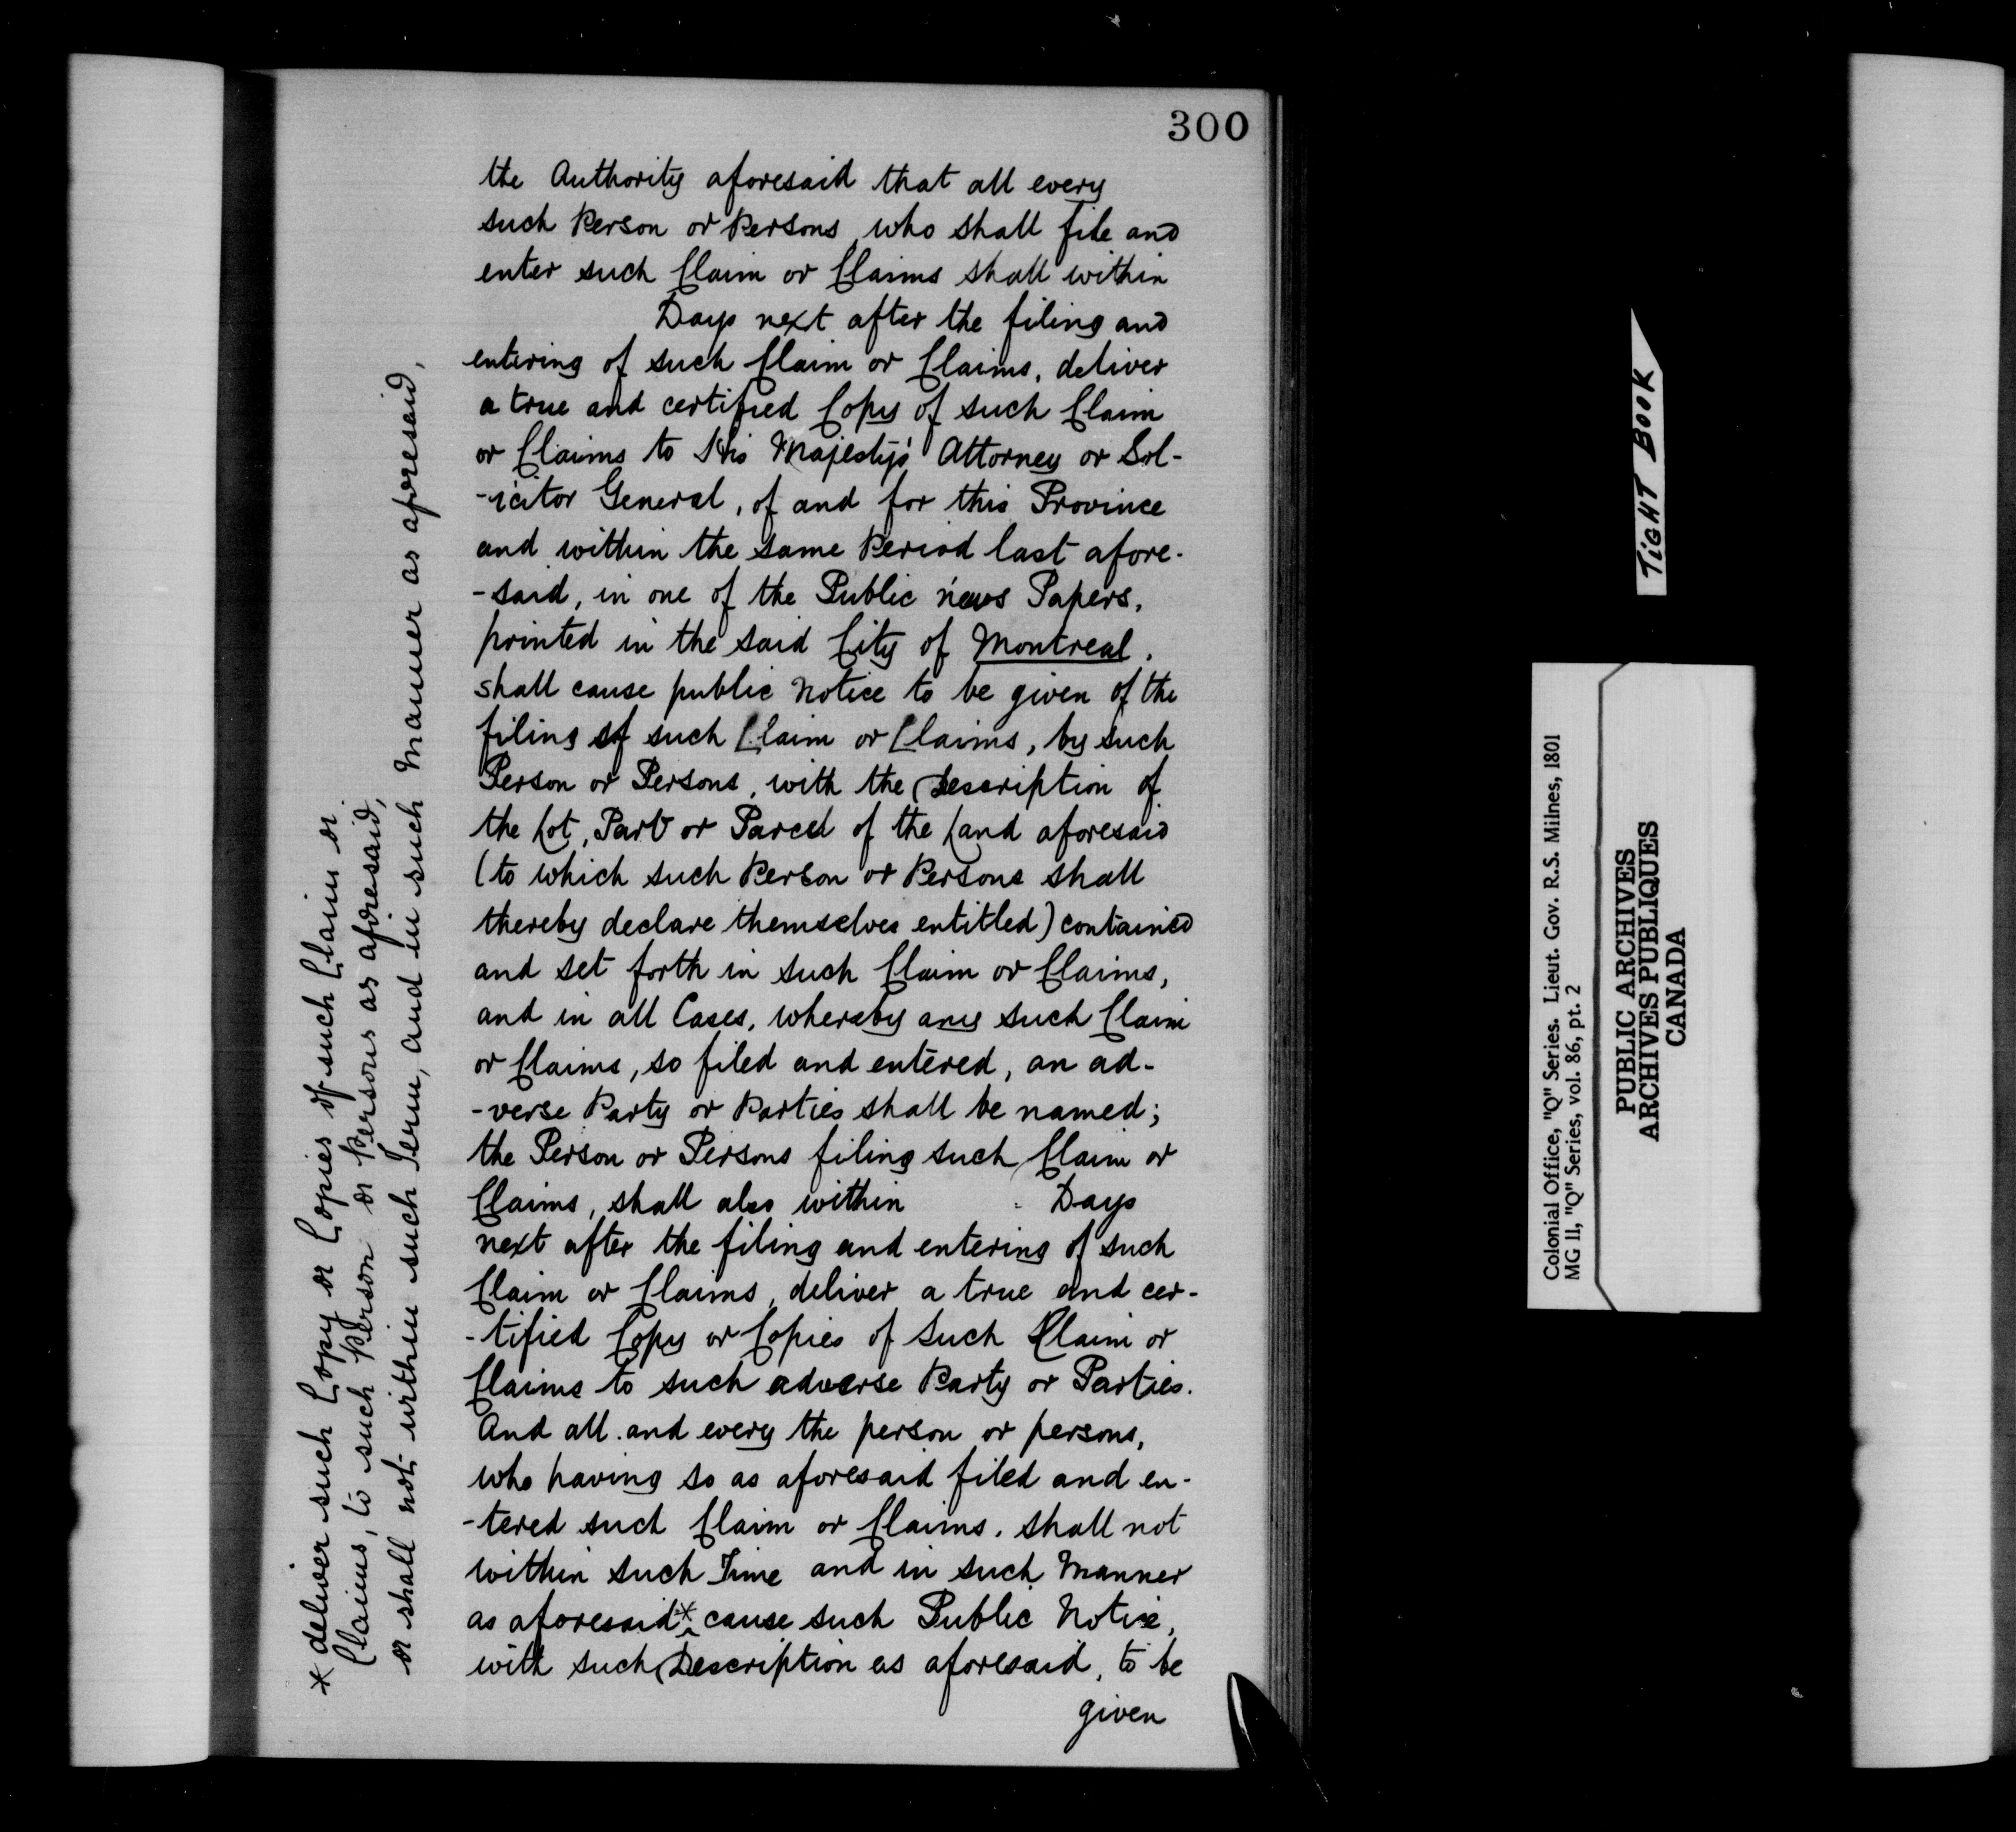 300
the Authority aforesaid that all every
such Person or Persons, who shall file and
enter such Claim or Claims shall within
Days next after the filing and
entering of such Claim or Claims, deliver
a true and certified Copy of such Claim
or Claims to His Majesty's Attorney or Sol-
-icitor General, of and for this Province
and within the same Period last afore-
-said, in one of the Public news Papers,
printed in the said City of Montreal,
shall cause public Notice to be given of the
filing of such Claim or Claims, by such
Person or Persons, with the Description of
the Lot, Part or Parcel of the Land aforesaid
(to which such Person or Persons shall
thereby declare themselves entitled) contained
and set forth in such Claim or Claims,
and in all Cases, whereby any such Claim
or Claims, so filed and entered, an ad-
-verse Party or Parties shall be named;
the Person or Persons filing such Claim or
Claims, shall also within Days
next after the filing and entering of such
Claim or Claims, deliver a true and cer-
-tified Copy or Copies of such Claim or
Claims to such adverse Party or Parties.
And all and every the person or persons,
who having so as aforesaid filed and en-
-tered such Claim or Claims, shall not
within such Time and in such Manner
as aforesaid * cause such Public Notice,
with such Description as aforesaid, to be
given
* deliver such Copy or Copies of such Claim or
Claims, to such Person or Persons as aforesaid,
or shall not within such Term, and in such Manner as aforesaid,
TIGHT BOOK
Colonial Office, "Q" Series. Lieut. Gov. R.S. Milnes, 1801
MG 11, "Q" Series, vol. 86, pt. 2
PUBLIC ARCHIVES
ARCHIVES PUBLIQUES
CANADA